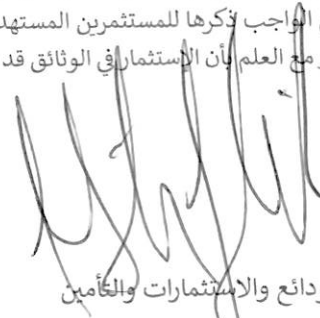 الواجب ذكرها للمستثمرين المستهد
مع العلم بأن الإستثمار في الوثائق قد
دائع والاستثمارات والتأمين